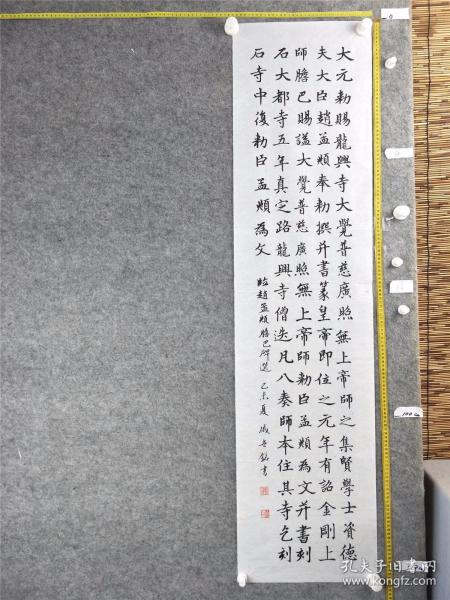 大元勅賜龍興寺大覺普慈廣照無上帝師之集賢學士資德
夫大臣趙孟頫奉勅撰并書篆皇帝即位之元年有詔金剛上
師膽巴賜諡大覺普慈廣照無上帝師勅臣孟頫為文并書刻
石大都寺五年真定路龍興寺僧迭凡八奏師本住其寺乞刻
石寺中復勅臣孟頫為文
臨趙孟頫膽巴碑選 未夏 書
孔夫子旧书网
kongfz.com